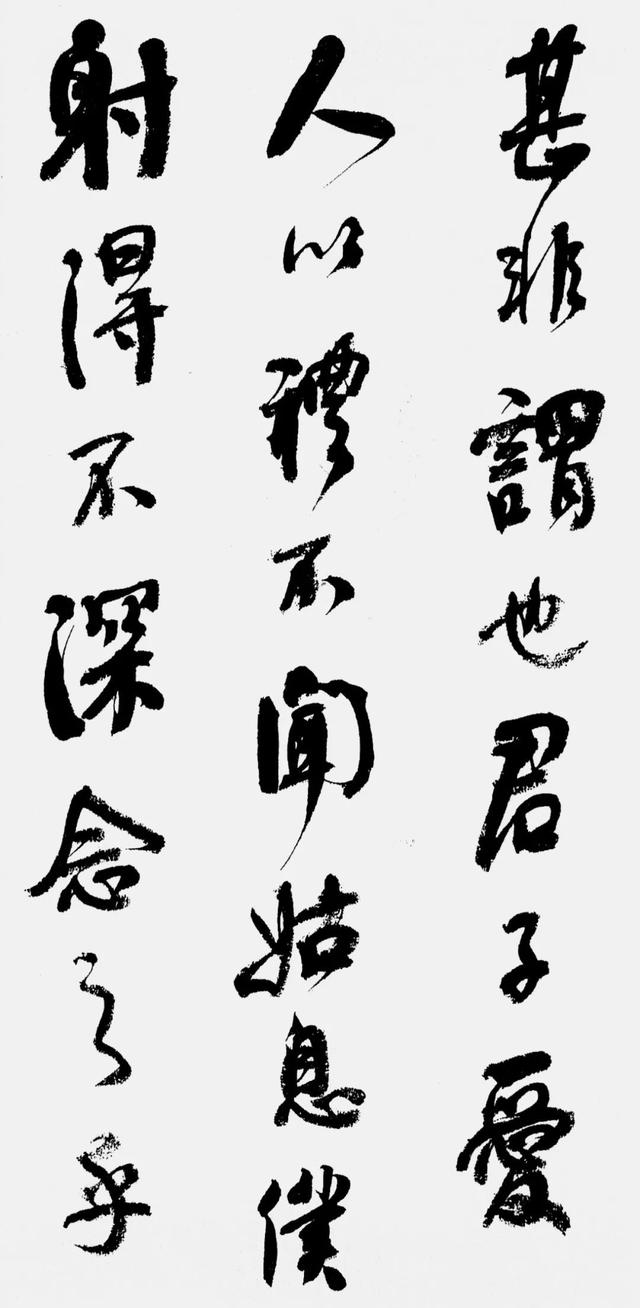 甚非謂也君子愛
人以禮不聞姑息僕
射得不深念之乎